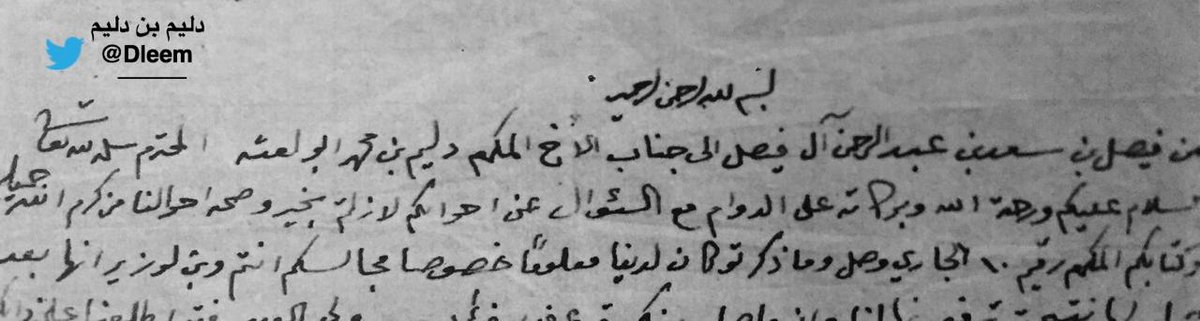 دليم بن دليم
@Dleem
بسم الله الرحمن الرحيم
من فيصل بن سعد بن عبد الرحمن آل فيصل الى جناب الأخ المكرم دليم بن محمد ابو لعثه المحترم سلمه الله تعالى
السلام عليكم ورحمة الله وبركاته على الدوام مع السئوال عن احوالكم لازلتم بخير وصحه احوالنا من كرم الله جميله
وكتابكم المكرم رقيم ١٠ الجاري وصل وما ذكرتو كان لدينا معلومًا خصوصا مجالسكم انتم وبن لوزير انها بعد